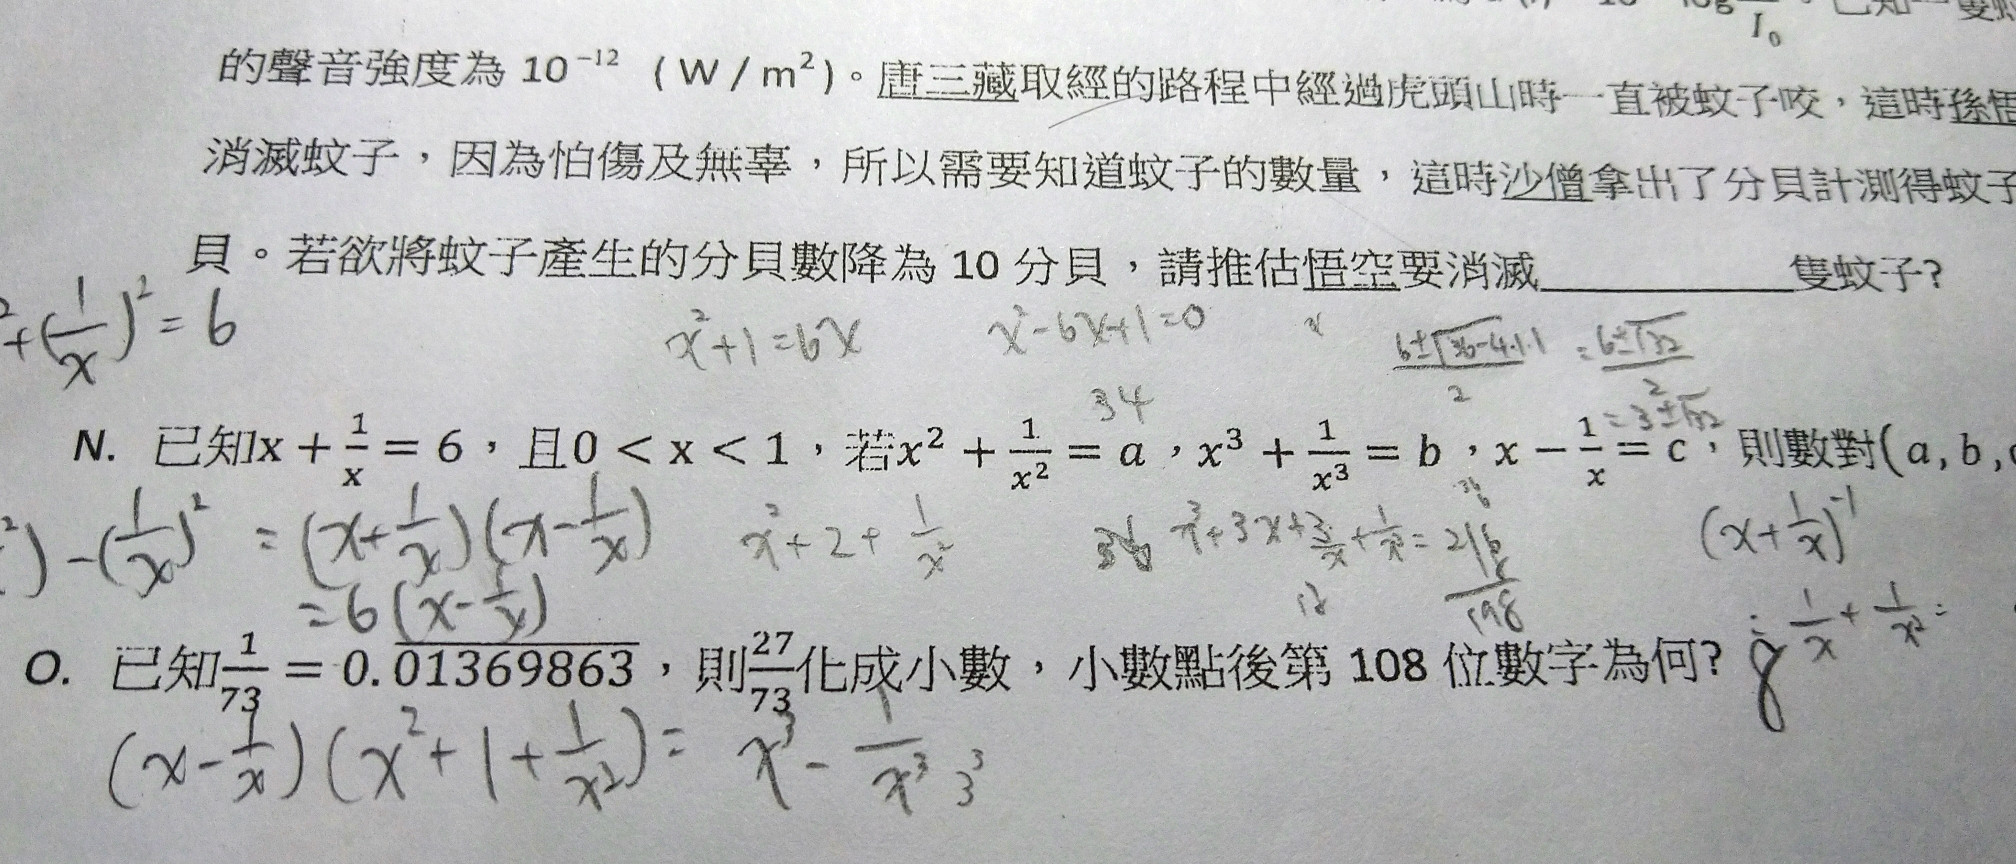 I₀
的聲音強度為 10⁻¹² (W/m²)。唐三藏取經的路程中經過虎頭山時一直被蚊子咬，這時孫悟
消滅蚊子，因為怕傷及無辜，所以需要知道蚊子的數量，這時沙僧拿出了分貝計測得蚊子
貝。若欲將蚊子產生的分貝數降為 10 分貝，請推估悟空要消滅____________隻蚊子?
+(1/x)² = 6
x²+1=6x
x²-6x+1=0
(6±√(36-4·1·1))/2 = (6±√32)/2
= 3±√32
34
N. 已知x + 1/x = 6，且0 < x < 1，若x² + 1/x² = a，x³ + 1/x³ = b，x − 1/x = c，則數對(a, b,
)-(1/x)² = (x+1/x)(x-1/x)
x²+2+1/x²
36
x³+3x+3/x+1/x³=216
(x+1/x)⁻¹
=6(x-1/x)
18
198
1/x + 1/x² =
O. 已知1/73 = 0.0̅1̅3̅6̅9̅8̅6̅3̅，則27/73化成小數，小數點後第 108 位數字為何?
(x-1/x)(x²+1+1/x²) = x³ - 1/x³
3³